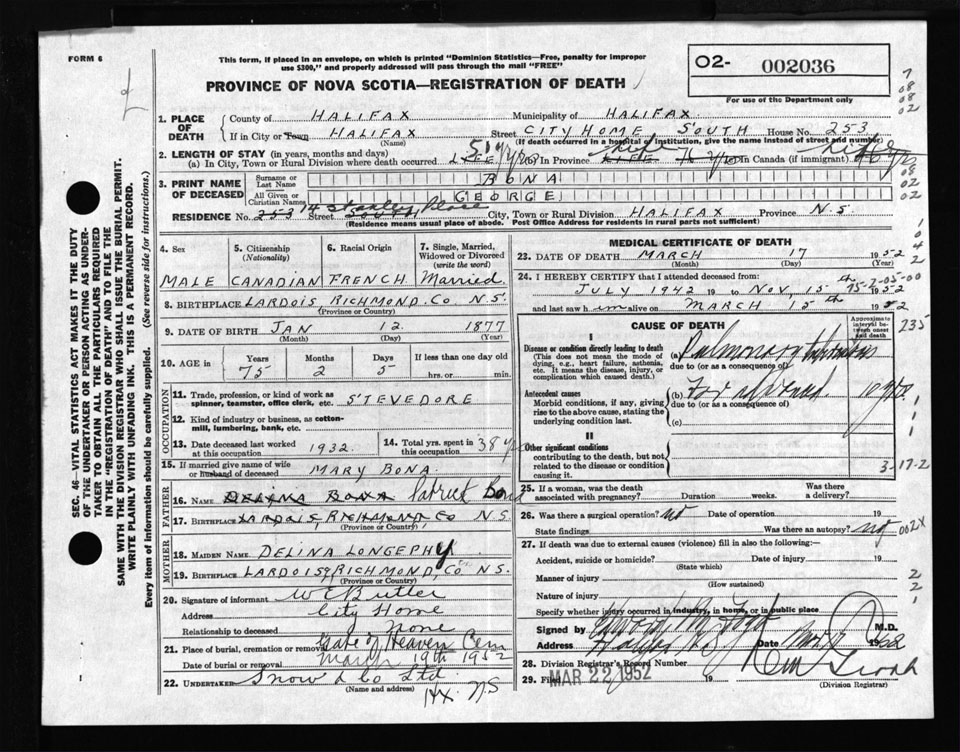 FORM 6
This form, if placed in an envelope, on which is printed "Dominion Statistics—Free, penalty for improper
use $300," and properly addressed will pass through the mail "FREE"
PROVINCE OF NOVA SCOTIA—REGISTRATION OF DEATH
02- 002036
For use of the Department only
1. PLACE OF DEATH
County of HALIFAX Municipality of HALIFAX
If in City or Town HALIFAX Street CITY HOME SOUTH House No. 253
(Name) (If death occurred in a hospital or institution, give the name instead of street and number)
2. LENGTH OF STAY (in years, months and days)
(a) In City, Town or Rural Division where death occurred LIFE (b) In Province LIFE In Canada (if immigrant)
3. PRINT NAME OF DECEASED
Surname or Last Name BONA
All Given or Christian Names GEORGE
RESIDENCE No. 253 14 Street City, Town or Rural Division HALIFAX Province N.S.
(Residence means usual place of abode. Post Office Address for residents in rural parts not sufficient)
4. Sex MALE
5. Citizenship (Nationality) CANADIAN
6. Racial Origin FRENCH
7. Single, Married, Widowed or Divorced (write the word) Married
8. BIRTHPLACE LARDOIS RICHMOND.CO N.S.
(Province or Country)
9. DATE OF BIRTH JAN 12. 1877
(Month) (Day) (Year)
10. AGE IN Years 75 Months 2 Days 5 If less than one day old hrs. or min.
OCCUPATION
11. Trade, profession, or kind of work as spinner, teamster, office clerk, etc. STEVEDORE
12. Kind of industry or business, as cotton-mill, lumbering, bank, etc.
13. Date deceased last worked at this occupation 1932.
14. Total yrs. spent in this occupation 38 y
15. If married give name of wife or husband of deceased MARY BONA
FATHER
16. NAME DELINA BONA Patrick Bona
17. BIRTHPLACE LARDOIS, RICHMOND, CO N.S.
(Province or Country)
MOTHER
18. MAIDEN NAME DELINA LONGEPHY
19. BIRTHPLACE LARDOISE RICHMOND, CO N.S.
(Province or Country)
20. Signature of informant W C Butler
Address City Home
Relationship to deceased None
21. Place of burial, cremation or removal Gate of Heaven Cem
Date of burial or removal March 19th 1952
22. UNDERTAKER Snow & Co Ltd
(Name and address) Hx. N.S
MEDICAL CERTIFICATE OF DEATH
23. DATE OF DEATH MARCH 17 1952
(Month) (Day) (Year)
24. I HEREBY CERTIFY that I attended deceased from:
JULY 1942 19 to NOV 15th
and last saw him alive on MARCH 15th 1952
CAUSE OF DEATH
Approximate interval between onset and death
I
Disease or condition directly leading to death
(This does not mean the mode of dying, e.g., heart failure, asthenia, etc. It means the disease, injury, or complication which caused death.)
(a) Pulmonary
due to (or as a consequence of)
Antecedent causes
Morbid conditions, if any, giving rise to the above cause, stating the underlying condition last.
(b) Far advanced. 10 yrs.
due to (or as a consequence of)
(c)
II
Other significant conditions
contributing to the death, but not related to the disease or condition causing it.
3-17-2
25. If a woman, was the death associated with pregnancy? Duration weeks. Was there a delivery?
26. Was there a surgical operation? no Date of operation 19
State findings Was there an autopsy? no
27. If death was due to external causes (violence) fill in also the following:—
Accident, suicide or homicide? Date of injury 19
(State which)
Manner of injury
(How sustained)
Nature of injury
Specify whether injury occurred in industry, in home, or in public place
Signed by M.D.
Address Halifax N.S. Date
28. Division Registrar's Record Number
29. Filed MAR 22 1952 19
(Division Registrar)
SEC. 46—VITAL STATISTICS ACT MAKES IT THE DUTY
OF THE UNDERTAKER OR PERSON ACTING AS UNDER-
TAKER TO OBTAIN ALL THE PARTICULARS REQUIRED
IN THE "REGISTRATION OF DEATH" AND TO FILE THE
SAME WITH THE DIVISION REGISTRAR WHO SHALL ISSUE THE BURIAL PERMIT.
WRITE PLAINLY WITH UNFADING INK. THIS IS A PERMANENT RECORD.
Every item of information should be carefully supplied. (See reverse side for instructions.)